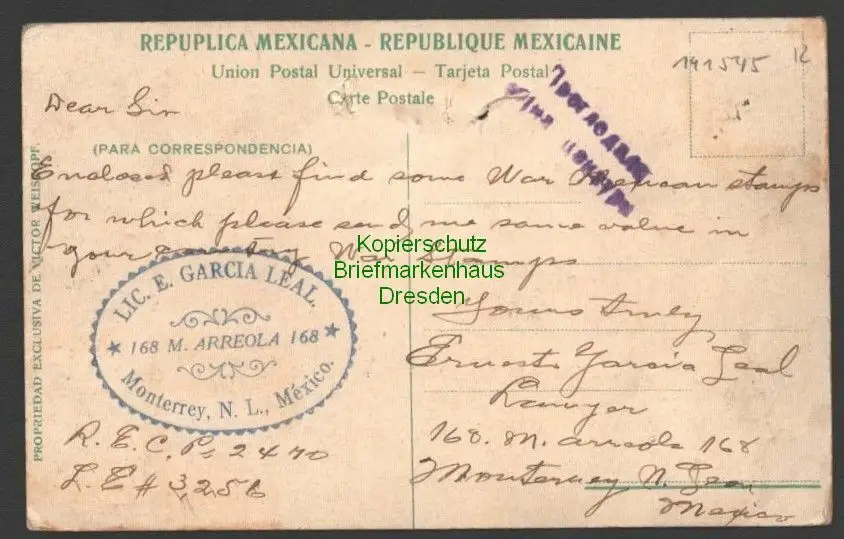 REPUPLICA MEXICANA - REPUBLIQUE MEXICAINE
Union Postal Universal — Tarjeta Postal
Carte Postale
141545 12
Прослѣдила
Dear Sir
(PARA CORRESPONDENCIA)
Enclosed please find some War Mexican stamps
for which please send me same value in
your country War Stamps
Yours truly
Ernesto Garcia Leal
Lawyer
168. M. Arreola 168
Monterrey N. Leon
Mexico
LIC. E. GARCIA LEAL.
★ 168 M. ARREOLA 168 ★
Monterrey, N. L., México.
R. E. C. P. 2470
L. E # 3256
PROPRIEDAD EXCLUSIVA DE VICTOR WEISKOPF.
Kopierschutz
Briefmarkenhaus
Dresden